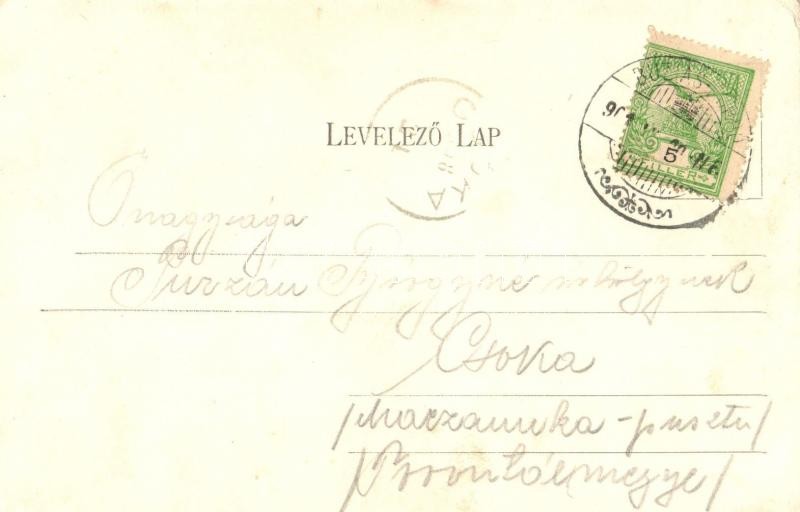 LEVELEZŐ LAP
5
FILLER
Őnagysága
Purzán Györgyné úrhölgynek
Csoka
/Marzamuka-puszta/
/Torontálmegye/